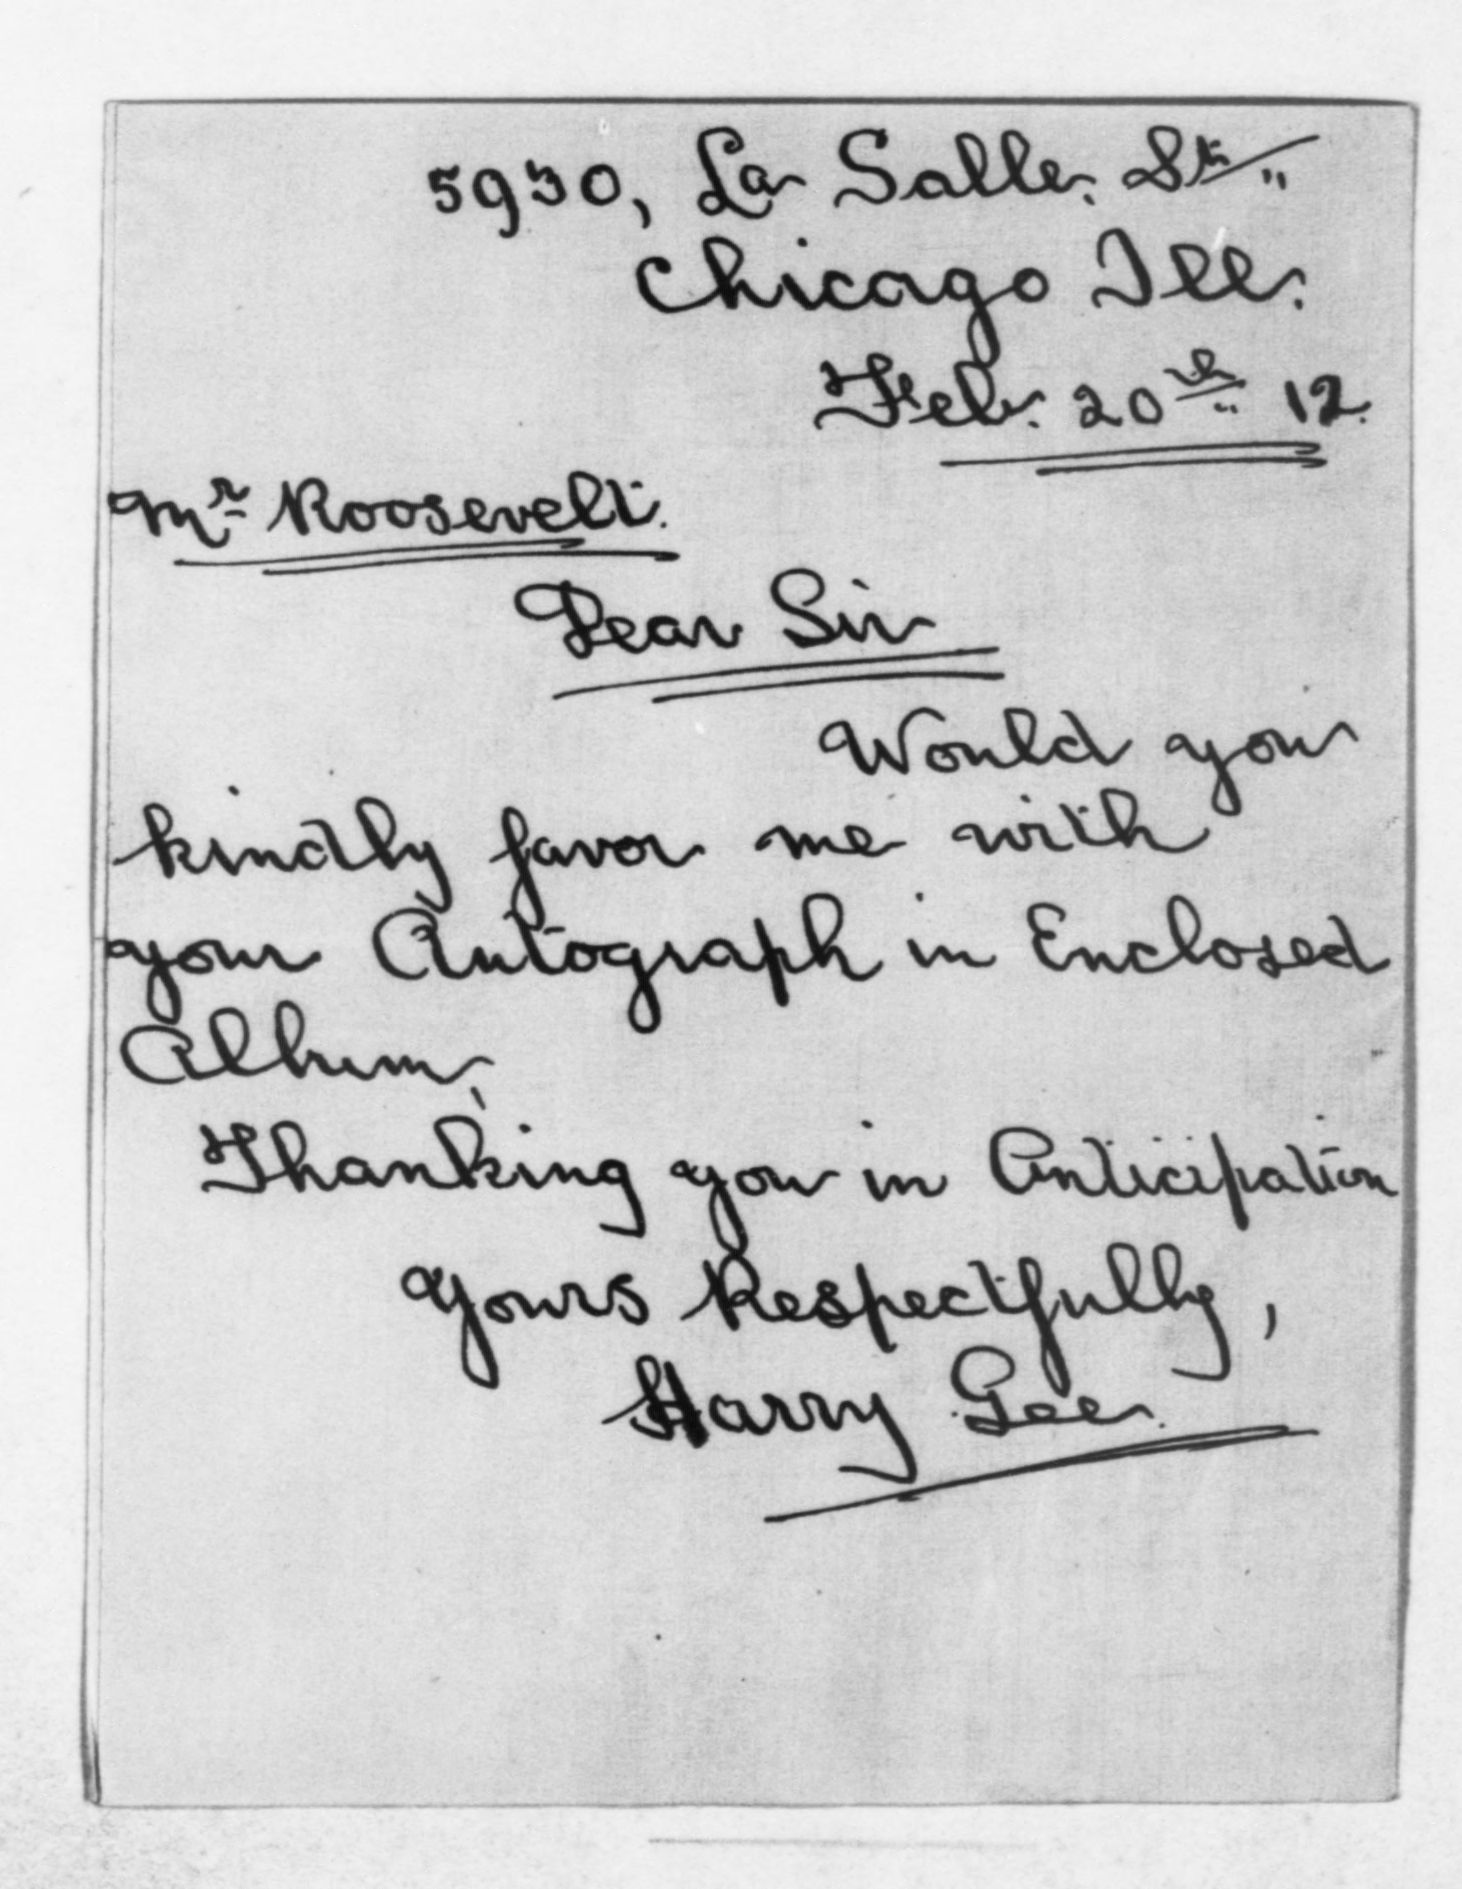 5930, La Salle. St.
Chicago Ill.
Feb. 20th 12.
Mr Roosevelt.
Dear Sir
Would you
kindly favor me with
your Autograph in Enclosed
Album,
Thanking you in Anticipation
Yours Respectfully,
Harry Gee.